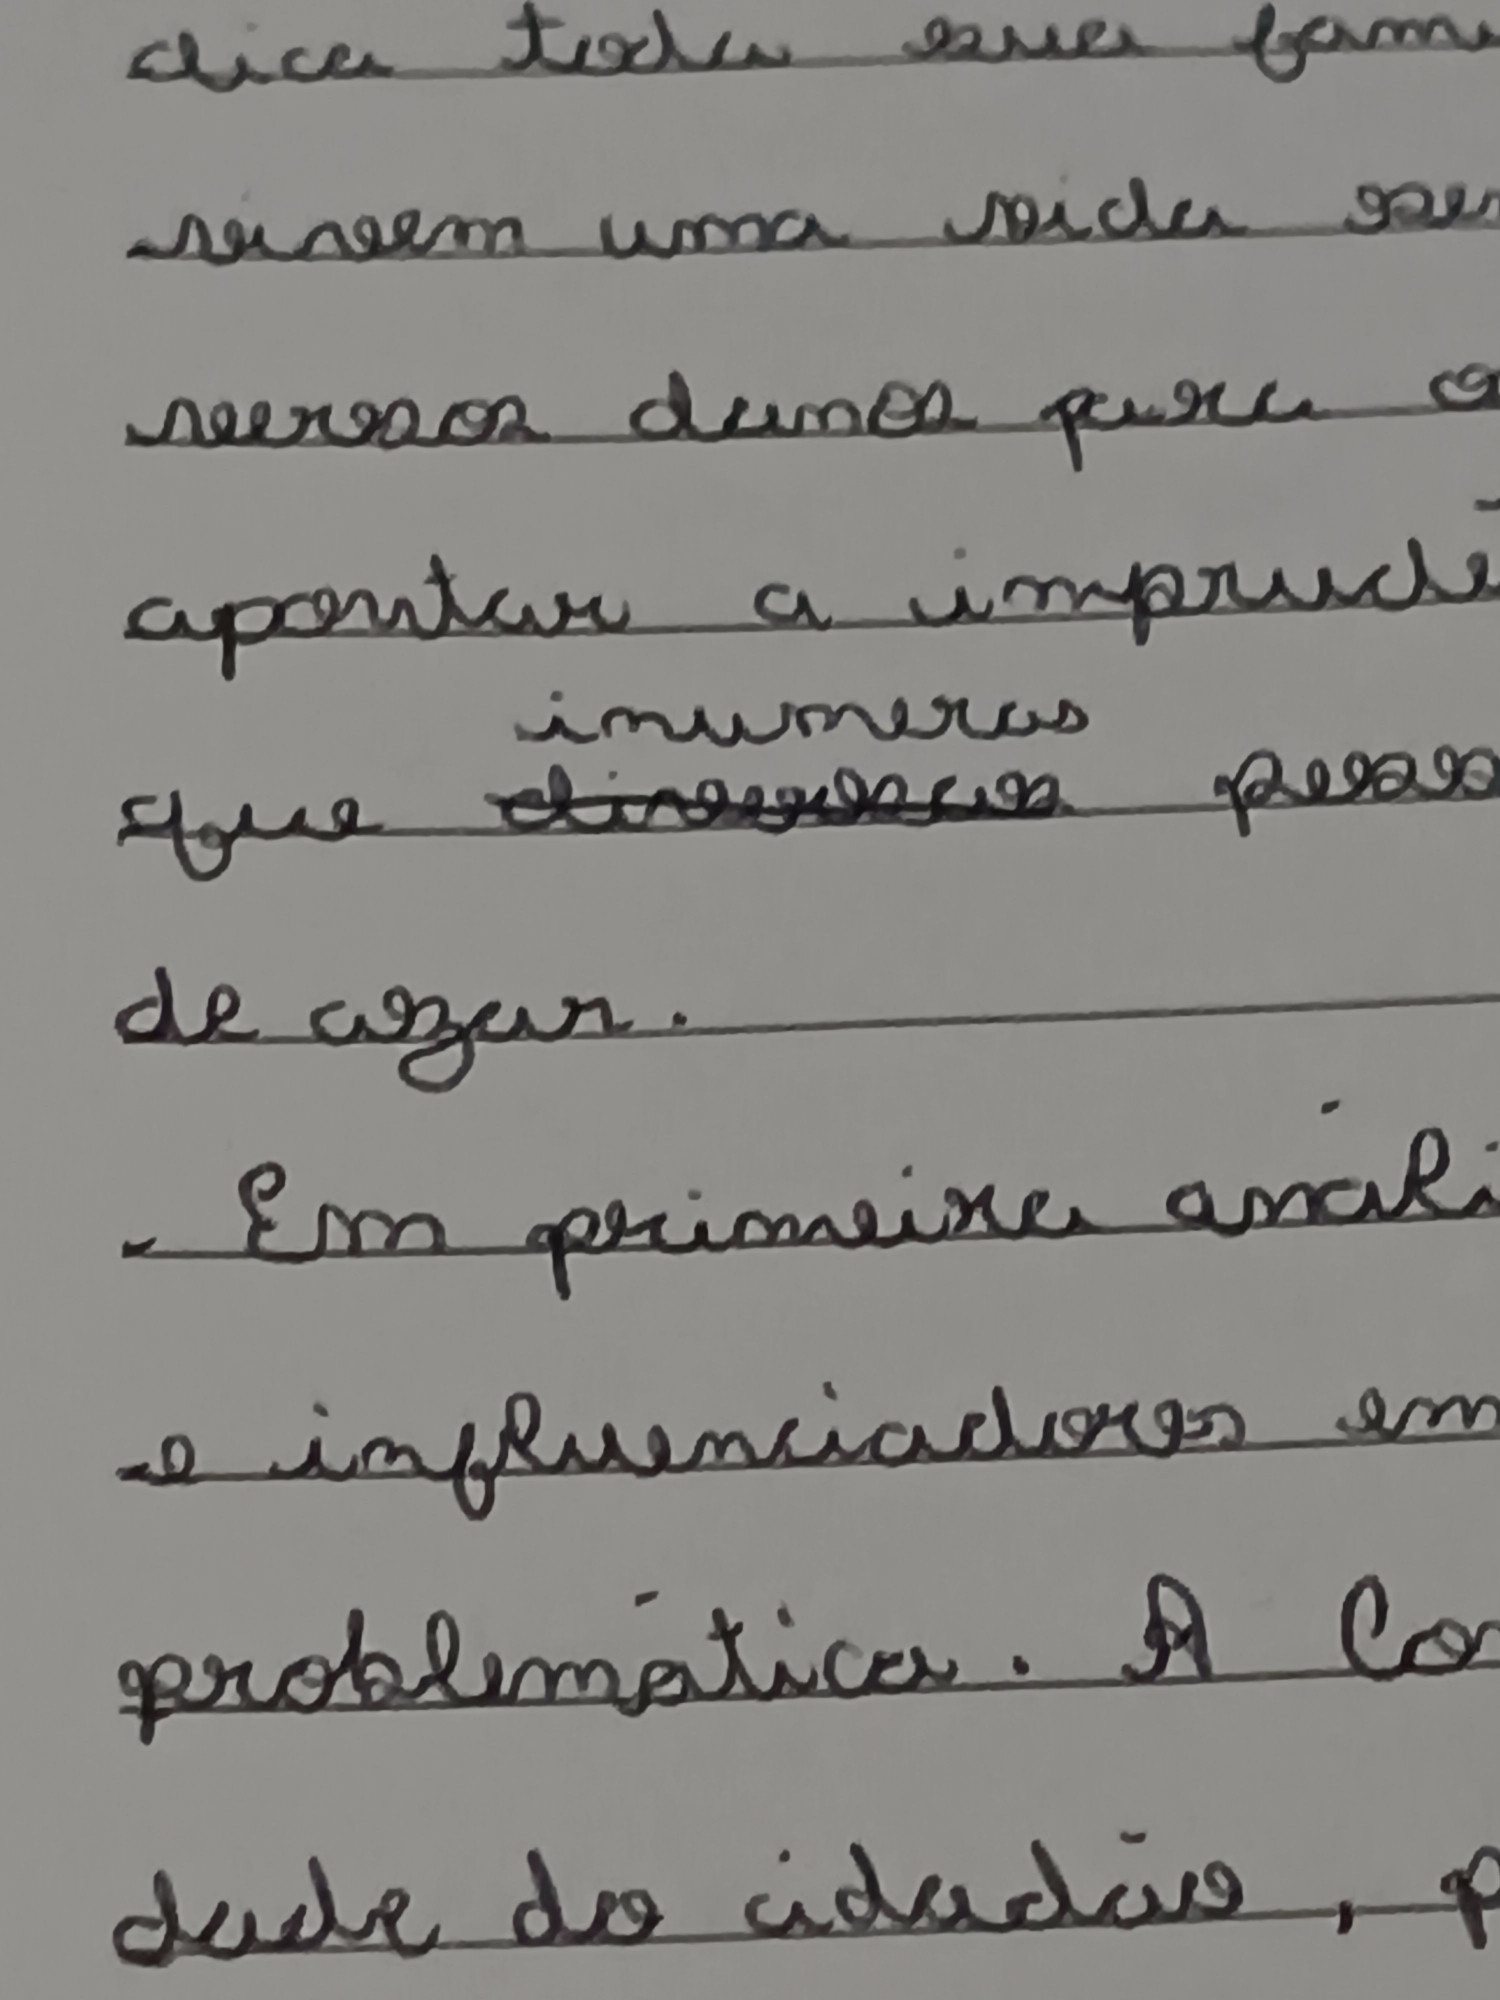 dica toda sua fami
vivem uma vida ser
versos danos para a
apontar a imprudê
inumeras
que pesso
de azar.
Em primeira anali
e influenciadores em
problemática. A Con
dade do cidadão, p